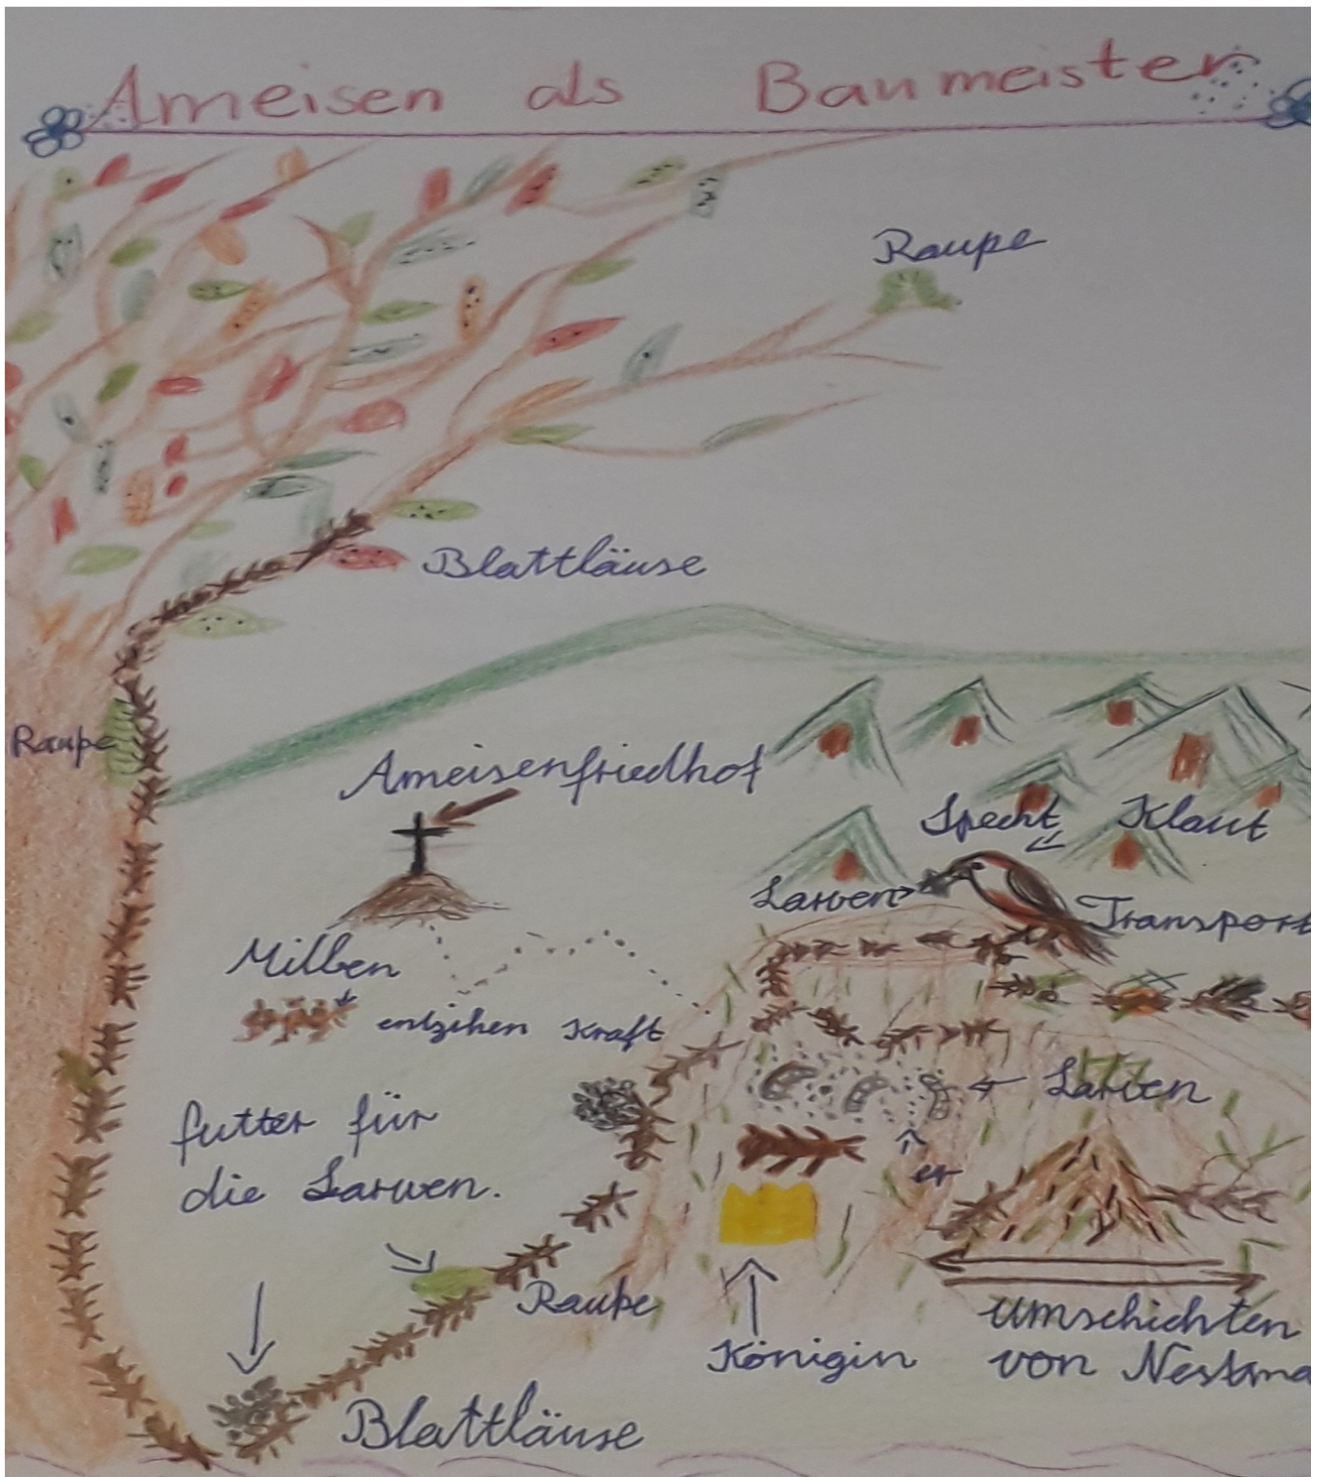 Ameisen als Baumeister
Raupe
Blattläuse
Raupe
Ameisenfriedhof
Specht Klaut
Larven
Transport
Milben
entzihen Kraft
Larven
futter für
die Larwen.
er
Raupe
Königin
Umschichten
von Nestma
Blattläuse